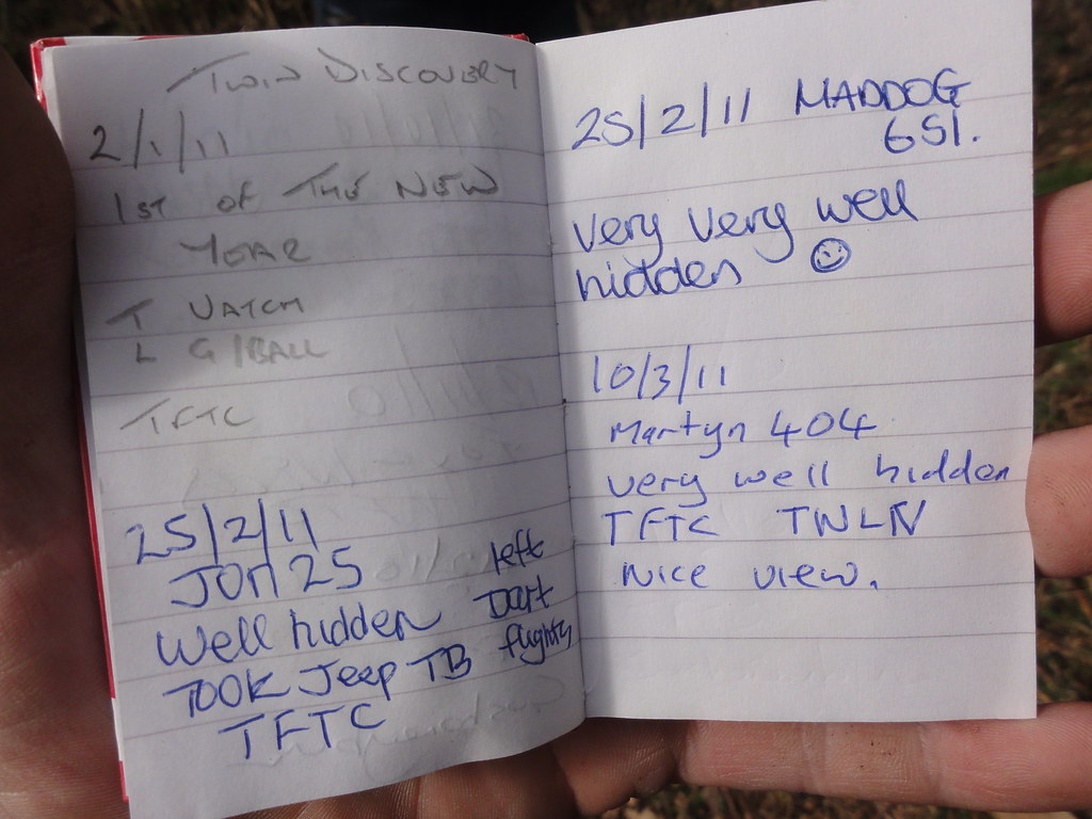 Twin Discovery
2/1/11
1st of The New
Year
T Watch
L G/Ball
TFTC
25/2/11
Jon 25
Well hidden
Took Jeep TB
TFTC
left
Dart
flights
25/2/11 MADDOG
651.
very very well
hidden ☺
10/3/11
Martyn 404
very well hidden
TFTC TNLN
Nice view.